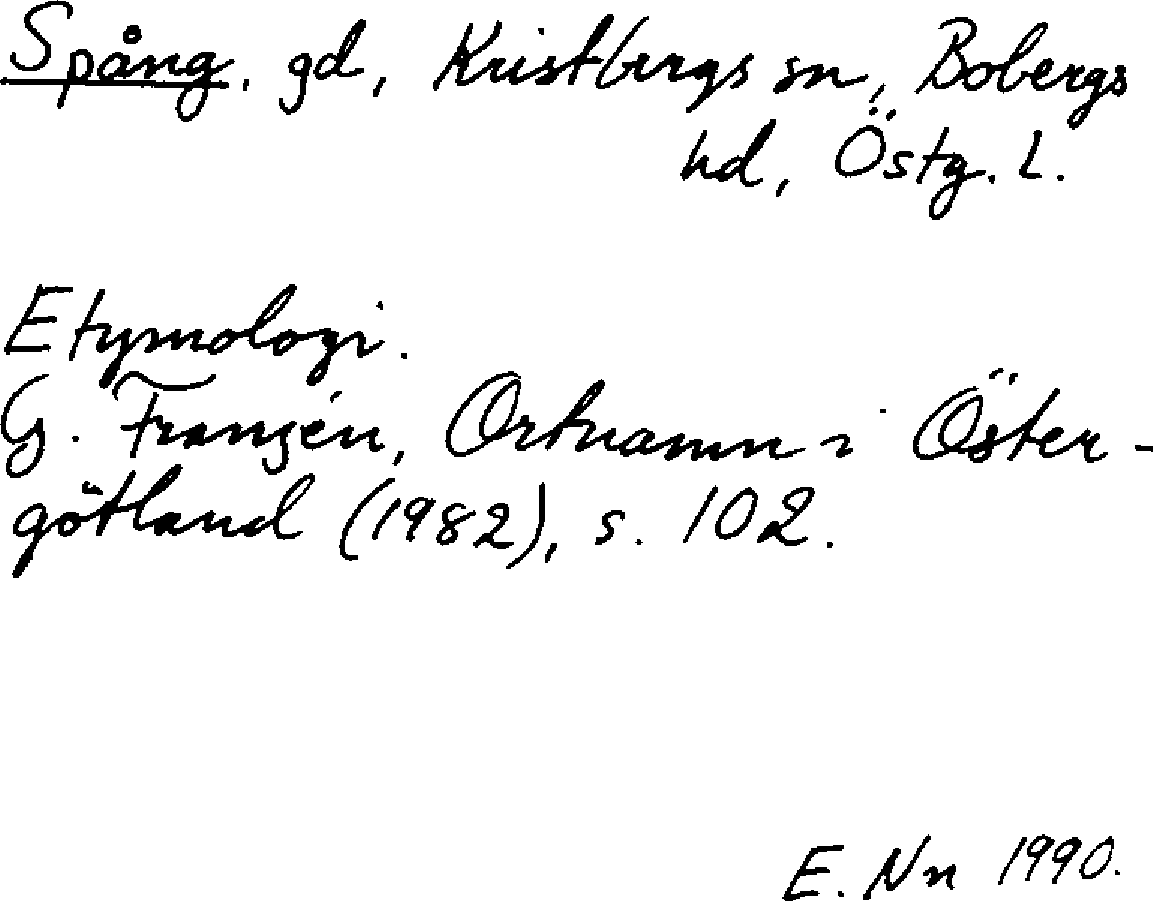 Spång. gd, Kristbergs sn, Bobergs
hd, Östg. L.
Etymologi.
G. Franzén, Ortnamn i Öster-
götland (1982), s. 102.
E. Nn 1990.